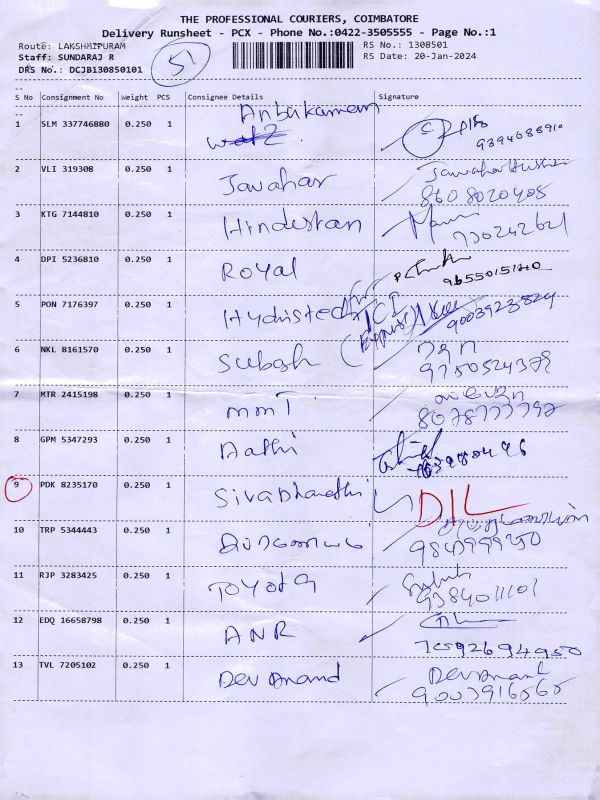 THE PROFESSIONAL COURIERS, COIMBATORE
Delivery Runsheet - PCX - Phone No.:0422-3505555 - Page No.:1
Route: LAKSHMIPURAM RS No.: 1308501
Staff: SUNDARAJ R RS Date: 20-Jan-2024
DRS No.: DCJB130850101
51
S No Consignment No Weight PCS Consignee Details Signature
1 SLM 337746880 0.250 1
2 VLI 319308 0.250 1 Javahar
8608020408
3 KTG 7144810 0.250 1 Hindustan
730242621
4 DPI 5236810 0.250 1 Royal
9655015140
5 PON 7176397 0.250 1
9003923824
6 NKL 8161570 0.250 1 Subash
9750524378
7 MTR 2415198 0.250 1 MMT
8078777797
8 GPM 5347293 0.250 1 Aathi
9 PDK 8235170 0.250 1 Sivabharathi D/L
10 TRP 5344443 0.250 1
11 RJP 3283425 0.250 1 TOYOTA
9384011101
12 EDQ 16658798 0.250 1 ANR
7592694950
13 TVL 7205102 0.250 1 Dev Anand Dev Anand
9003916565